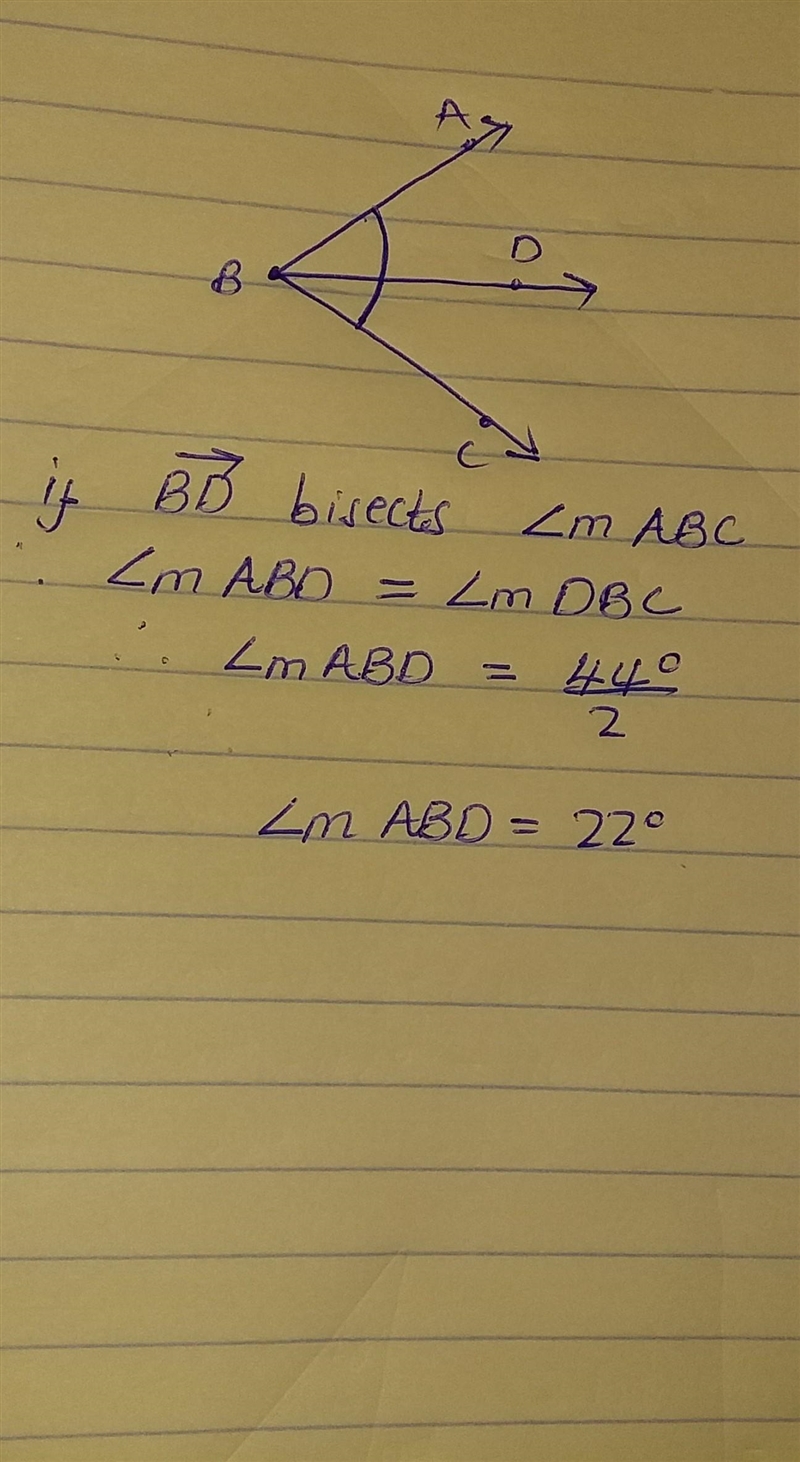 A
D
B
C
if BD bisects ∠m ABC
∴ ∠m ABD = ∠m DBC
∴ ∠m ABD = 44°/2
∠m ABD = 22°